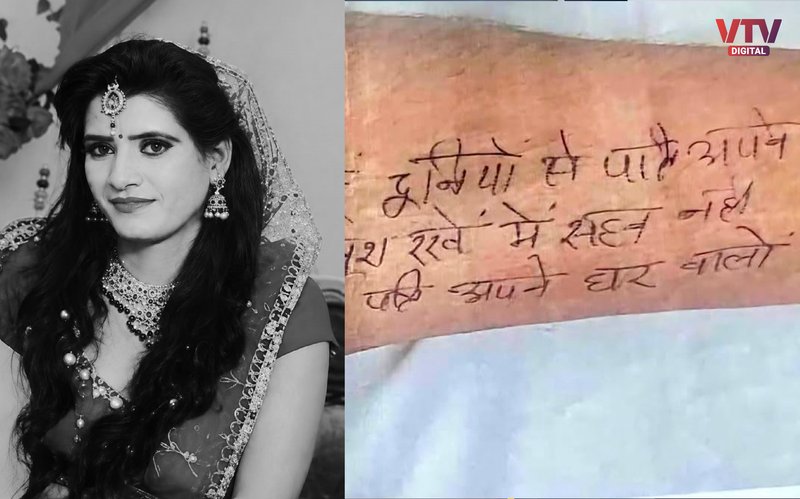 VTV
DIGITAL
दुनियों से पति अपने
रखें में सहन नही
पति अपने घर वालो